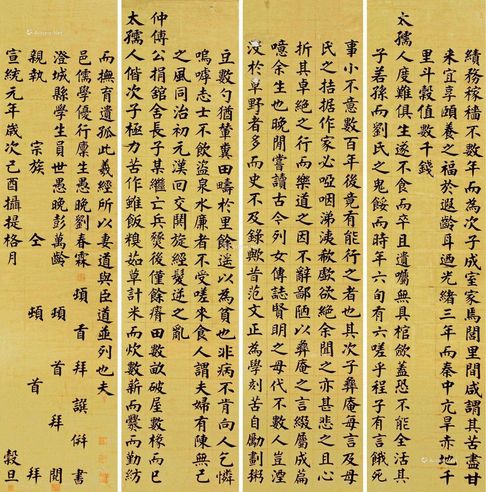 績務稼穡不數年而為次子成室家焉閭閒咸謂其苦盡甘
來宜享頤養之福於遐齡耳迺光緒三年而秦中亢旱赤地千
里斗穀值數千錢
太孺人度難俱生遂不食而卒且遺囑無具棺斂蓋恐不能全活其
子若孫而劉氏之鬼餒而時年六旬有六嗟乎程子有言餓死
事小不意數百年後竟有能行之者也其次子彝庵每言及母
氏之拮据作家必啞咽涕洟歔欷欲絕余聞之亦甚悲之且心
折其卓絕之行而樂道之因不辭鄙陋以彝庵之言綴屬成篇
噫余生也晚閒嘗讀古今列女傳誌賢明之母代不數人豈湮
沒於草野者多而史不及錄歟昔范文正為學刻苦自勵劃粥
豆數勺猶糞田疇於里餘遙以為貧也非病不肯向人乞憐
嗚呼志士不飲盜泉水廉者不受嗟來食人謂夫婦有陳無己
之風同治初元漢回交鬨旋經髮逆之亂
仲傅公捐館舍長子某繼亡兵燹後僅餘瘠田數畝破屋數椽而已
太孺人偕次子極力苦作雖飯糗茹草計米而炊數薪而爨而勤紡
而撫有遺孤此義經所以妻道與臣道並列也夫
邑儒學優行廩生世愚晚劉春霖 頓首拜譔併書
澄城縣學生員世愚晚彭萬齡 頓首拜閱
親執 宗族 仝 頓首拜
宣統元年歲次己酉攝提格月 穀旦